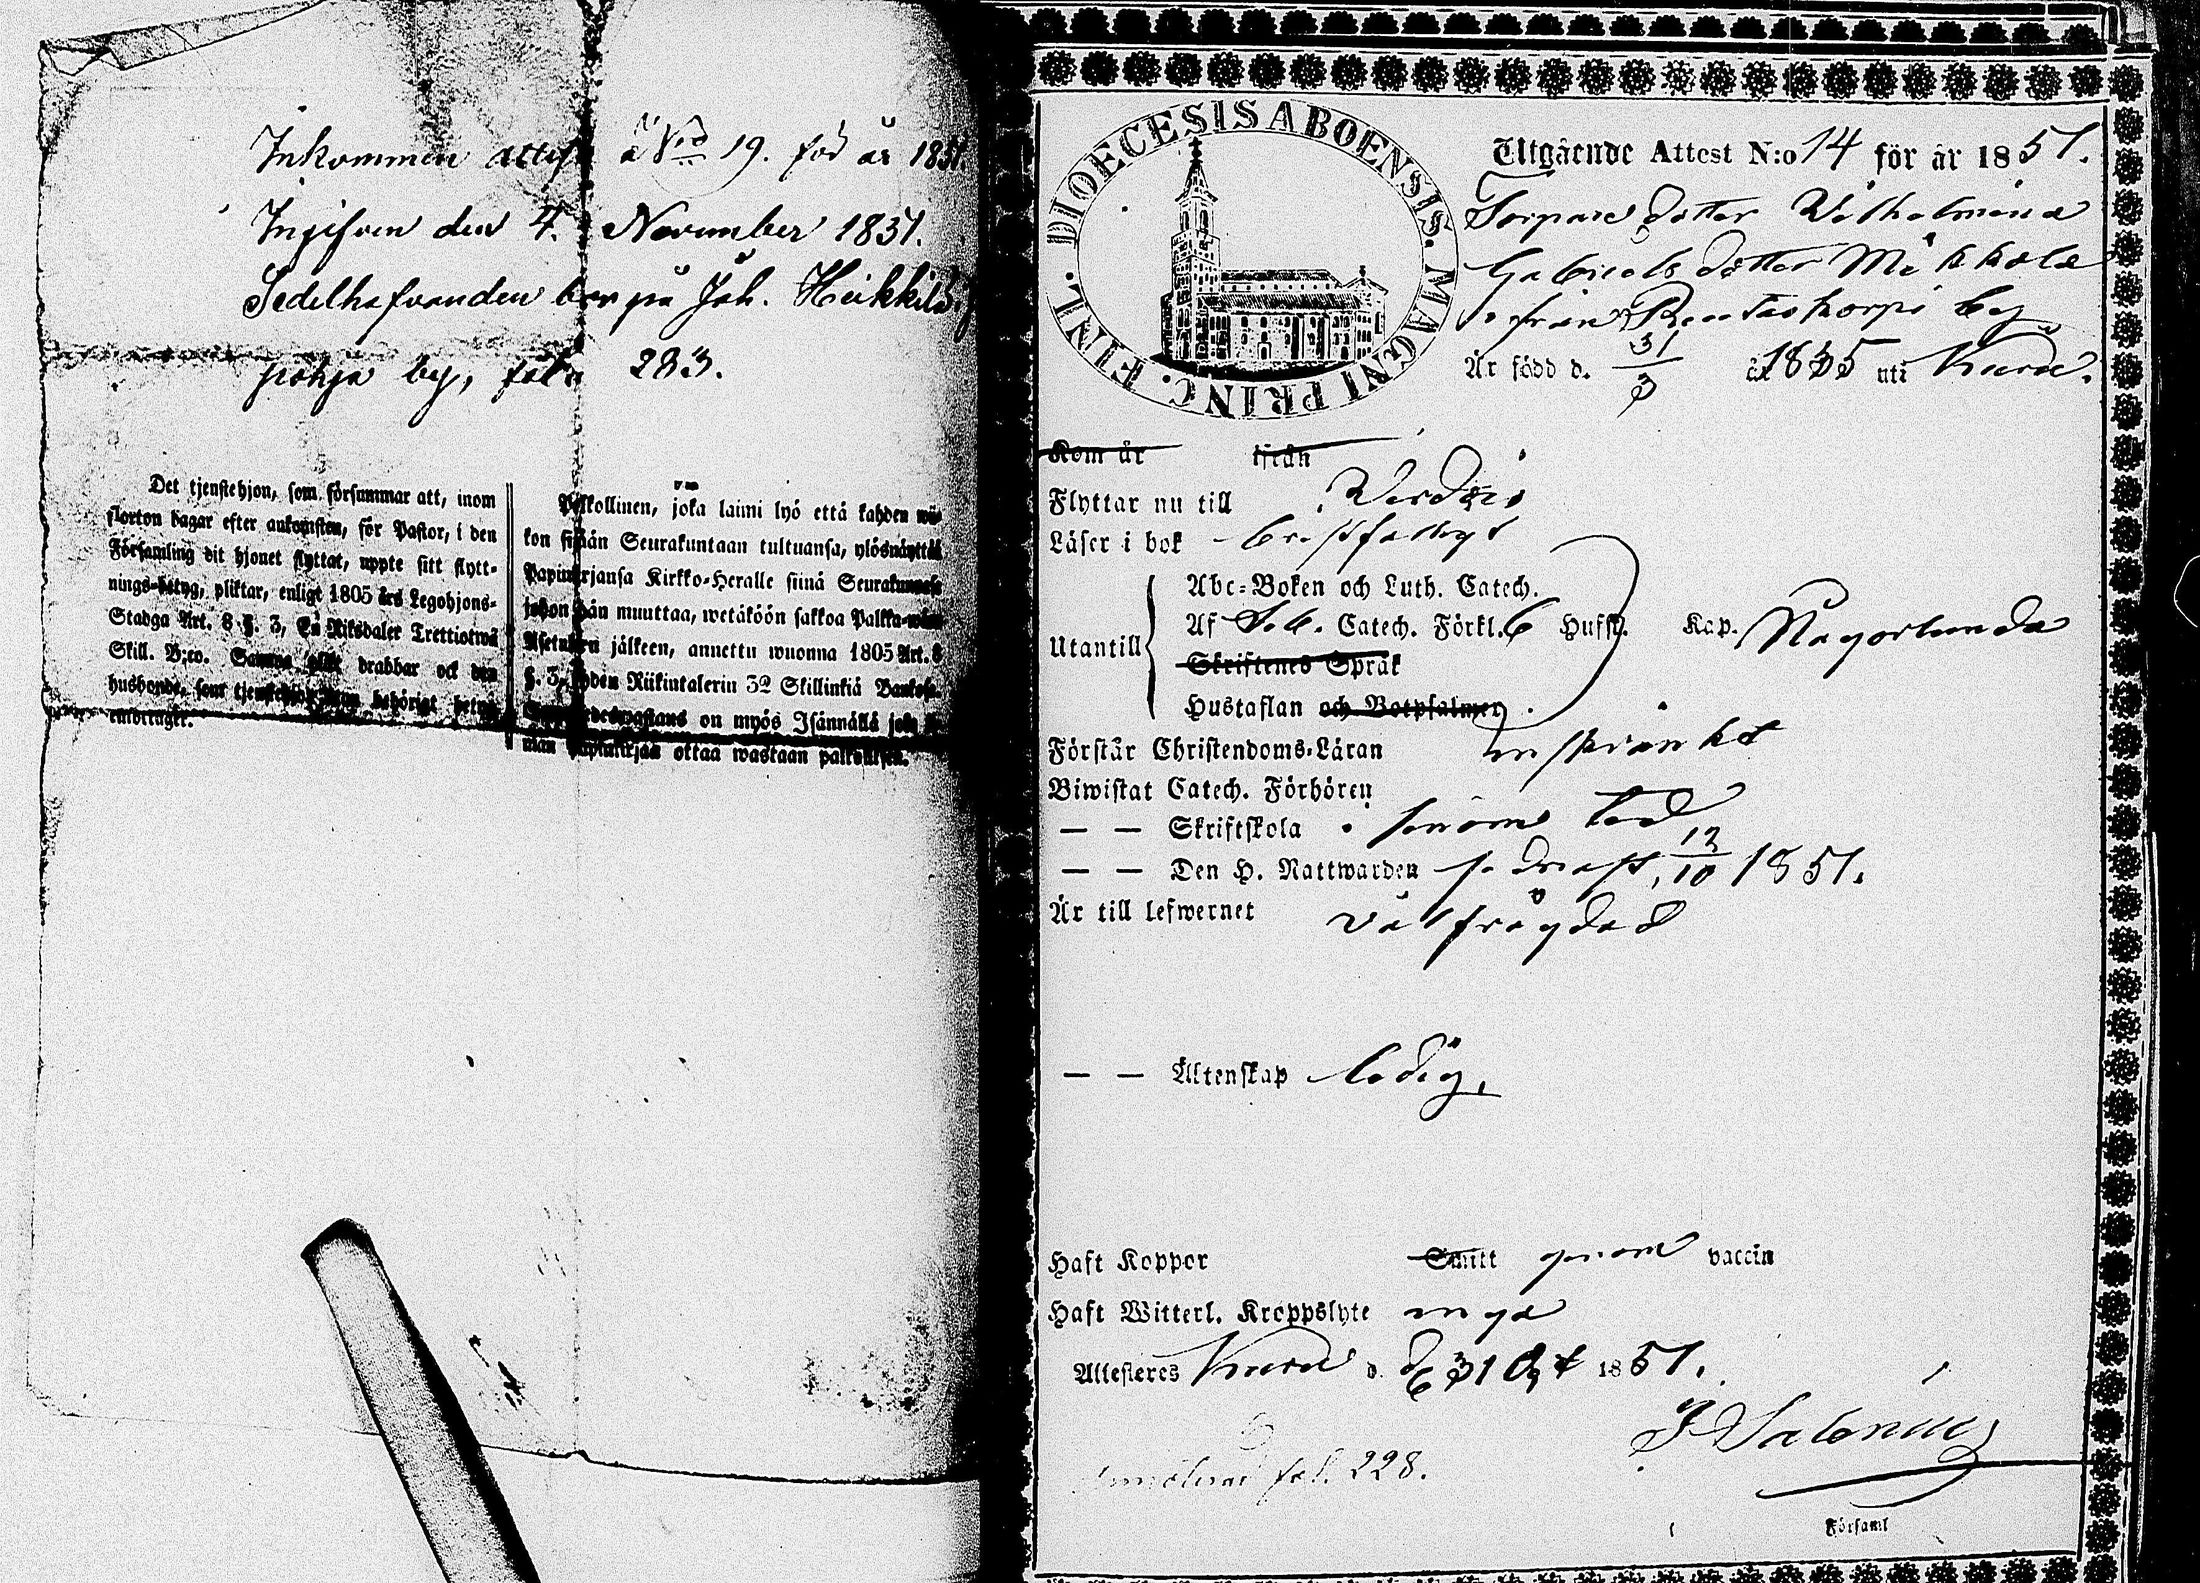 Inkommen attest å N:o 19. för år 1851.
Ingifven den 4. November 1851.
Sedelhafvanden bor på Joh. Heikkilä
pohja by, fol. 283.
Det tjenstehjon, som försummar att, inom
fiorton dagar efter ankomsten, för Pastor, i den
Församling dit hjonet flyttat, uppte sitt flytt-
nings-betyg, pliktar, enligt 1805 års Legohjons-
Stadga Art. 8 §. 3, En Riksdaler Trettiotwå
Skill. B:co. Samma plikt drabbar ock den
husbonde, som tjenstehjon utan behörigt betyg
emottager.
Palkollinen, joka laimi lyö että kahden wii-
kon sisään Seurakuntaan tultuansa, ylösnäyttää
Papinkirjansa Kirkko-Heralle siinä Seurakunnassa
johon hän muuttaa, wetäköön sakkoa Palkka-wäen
Asetuksen jälkeen, annettu wuonna 1805 Art. 8
§. 3, yhden Riikinkalerin 32 Skillinkiä Bankosa.
on myös Isännällä joka
man papinkirjaa ottaa wastaan palkollisen.
DIOECESIS ABOENSIS. MAGNI PRINC. FINL.
Utgående Attest N:o 14 för år 1851.
Torpare dotter Wilhelmina
Gabriels dotter Mikkola
från Rentaskorpi by
Är född d. 31/3 år 1835 uti Kuru.
Kom år ifrån
Flyttar nu till Virdois
Läser i bok berffeligt
Abc-Boken och Luth. Catech.
Utantill Af Seb. Catech. Förkl. 6 Hufst. Kap. Någorlunda
Skriftenes Språk
Hustaflan och Botpsalmer
Förstår Christendoms-Läran inskränkt
Biwistat Catech. Förhören
— — Skriftskola
— — Den H. Nattwarden 12/10 1851.
Är till lefwernet välfrägdad
— — Äktenskap ledig.
Haft Koppor Smitt genom vaccin
Haft Witterl. Kroppslyte inga
Attesteres Kuru d. 31 Oct 1851.
J Salenius
Anmälrad fol. 228.
Församl